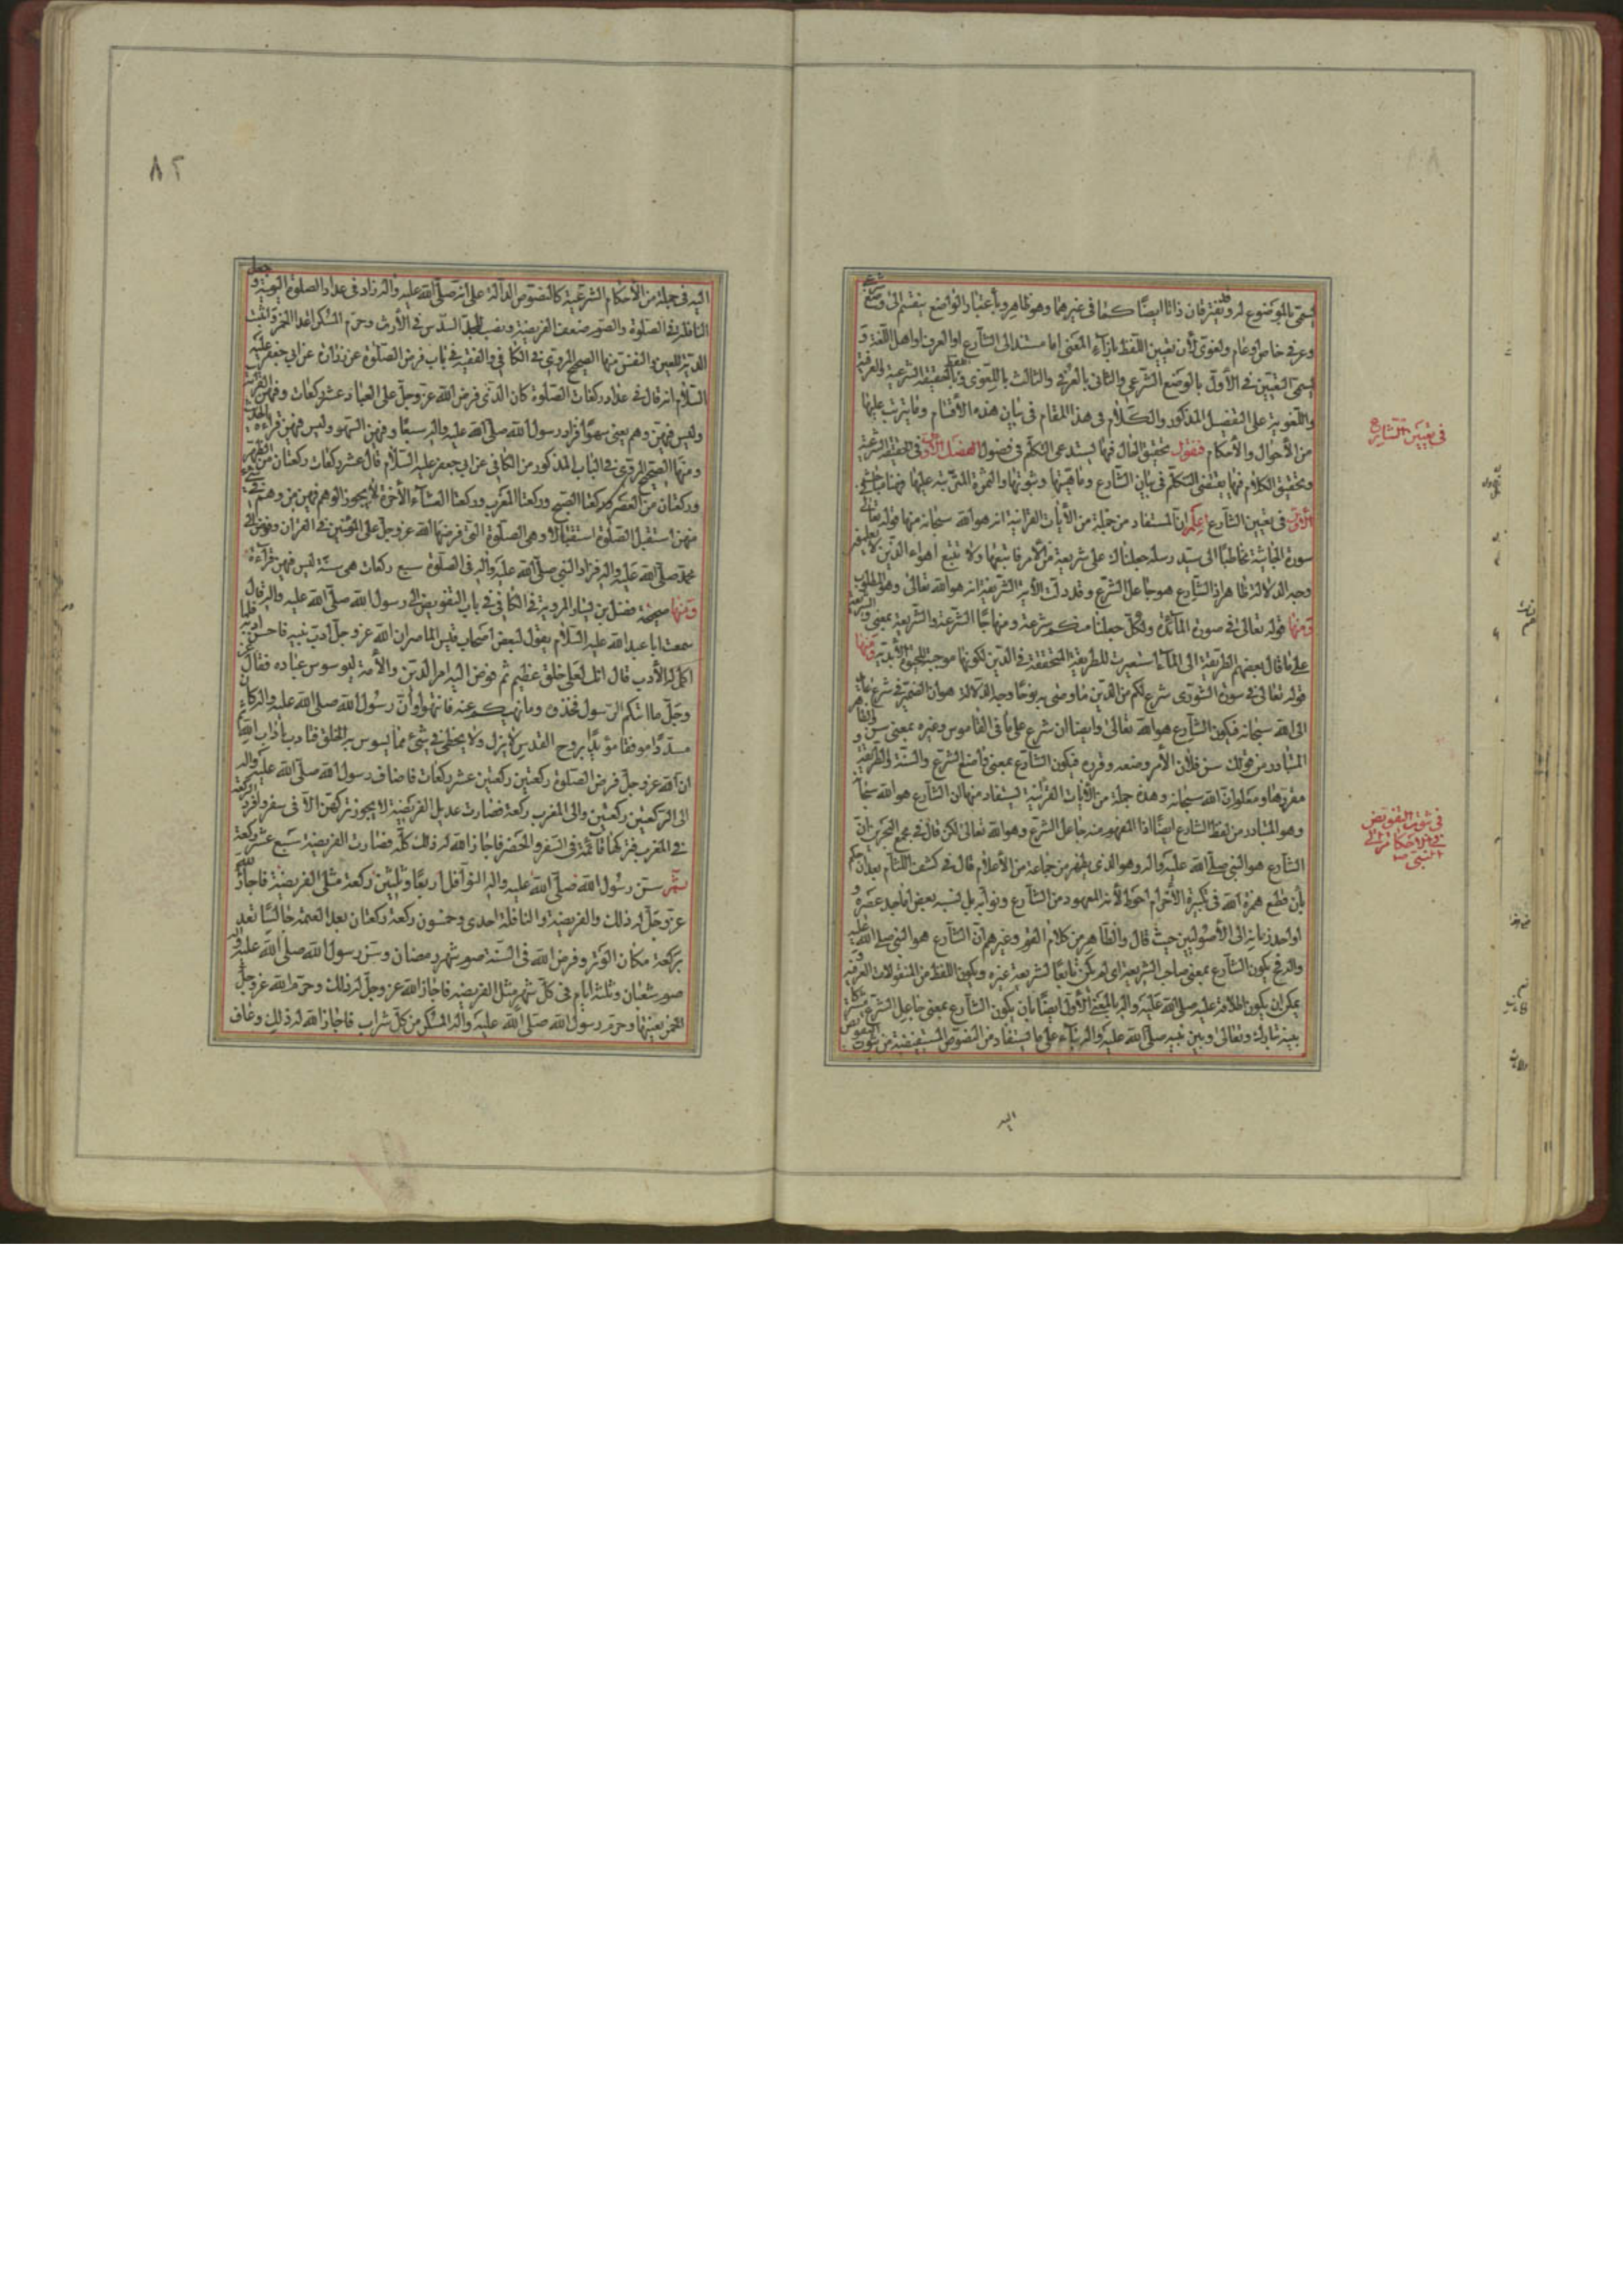 يسمّى بالموضوع له وقد يفترقان ذاتا ايضًا كما فى غيرهما وهو ظاهر وبأعتبار الواضع ينقسم الى وضع شرعى
وعرفى خاص او عام ولغوى لأن تعيين اللفظ بازآء المعنى اما مستند الى الشارع او العرف او اهل اللغة و
يسمّى التعيين فى الأول بالوضع الشرعى والثانى بالعرفى والثالث باللغوى وبالحقيقة الشرعية والعرفية
واللغوية على التفصيل المذكور والكلام فى هذا المقام فى بيان هذه الأقسام وما يترتب عليها
من الأحوال والأحكام فنقول تحقيق الحال فيها يستدعى التكلم فى فصول الفصل الأول فى الحقيقة الشرعية
وتحقيق الكلام فيها يقتضى التكلم فى بيان الشارع وماهيتها وثبوتها والثمرة المترتبة عليها فهنا مباحث
الأول فى تعيين الشارع اعلم ان المستفاد من جملة من الأيات القرانية انه هو الله سبحانه منها قوله تعالى فى
سورة الجاثية مخاطبًا الى سيد رسله جعلناك على شريعة من الأمر فاتبعها ولا تتبع اهواء الذين لا يعلمون
وجه الدلالة ظاهر اذ الشارع هو جاعل الشرع وقد دلت الأية الشريفة انه هو الله تعالى وهو المطلوب
ومنها قوله تعالى فى سورة المآئدة ولكل جعلنا منكم شرعة ومنهاجًا الشرعة والشريعة بمعنى والشريعة
على ما قال بعضهم الطريقة الى المآء استعيرت للطريقة المتحققة فى الدين لكونها موجبة للحيوة الأبدية ومنها
قوله تعالى فى سورة الشورى شرع لكم من الدين ما وصى به نوحًا وجه الدلالة هو ان الضمير فى شرع عائد
الى الله سبحانه فيكون الشارع هو الله تعالى وايضا ان شرع على ما فى القاموس وغيره بمعنى سن والظاهر
المتبادر من قولك سن فلان الأمر وضعه وقرره فيكون الشارع بمعنى واضع الشرع والسنة والطريقة و
مقررها ومعلوم ان الله سبحانه وهذه جملة من الأيات القرآنية يستفاد منها ان الشارع هو الله سبحانه
وهو المتبادر من لفظ الشارع ايضًا اذ المفهوم منه جاعل الشرع وهو الله تعالى لكن قال فى مجمع البحرين انّ
الشارع هو النبى صلى الله عليه وآله وهو الذى يظهر من جماعة من الأعلام قال فى كشف اللثام بعد ان حكم
بأن قطع همزة الله فى تكبيرة الأحرام احوط لأنه المعهود من الشارع ونوابه بل نسبه بعض اماجد عصره و
اواحد زمانه الى الأصوليين حيث قال والظاهر من كلام القوم وغيرهم انّ الشارع هو النبى صلى الله عليه
وآله فح يكون الشارع بمعنى صاحب الشريعة اى لم يكن تابعًا لشريعة غيره ويكون اللفظ من المنقولات العرفية و
يمكن ان يكون اطلاقه عليه صلى الله عليه وآله بالمعنى الأول ايضًا بأن يكون الشارع بمعنى جاعل الشرع مشتركا
بينه تبارك وتعالى وبين نبيه صلى الله عليه وآله بناء على ما يستفاد من النصوص المستفيضة من ثبوت التفويض
اليه
فى تعيين الشارع
فى ثبوت التفويض
فى الأحكام الى
النبى ص
٨٢
اليه فى جملة من الأحكام الشرعية كالنصوص الدالة على انه صلى الله عليه وآله زاد فى عداد الصلوة اليومية و جعل
النافلة فى الصلوة والصوم ضعف الفريضة ونصب للجد السدس فى الأرث وحرم المسكر عدا الخمر واثبت
الدية للعين والنفس منها الصحيح المروى فى الكافى والفقيه فى باب فرض الصلوة عن زرارة عن ابى جعفر عليه
السلام انه قال فى عداد ركعات الصلوة كان الذى فرض الله عز وجل على العباد عشر ركعات وفيهن القرائة
وليس فيهن وهم يعنى سهوًا فزاد رسول الله صلى الله عليه وآله سبعًا وفيهن السهو وليس فيهن قراءة الحديث
ومنها الصحيح المروى فى الباب المذكور من الكافى عن ابى جعفر عليه السلام قال عشر ركعات ركعتان من الظهر
وركعتان من العصر وركعتا الصبح وركعتا المغرب وركعتا العشآء الأخرة لا يجوز الوهم فيهن من وهم فى شىء
منهن استقبل الصلوة استقبالا وهى الصلوة التى فرضها الله عز وجل على المؤمنين فى القران وفوض الى
محمد صلى الله عليه وآله فزاد النبى صلى الله عليه وآله فى الصلوة سبع ركعات هى سنة ليس فيهن قرآءة
ومنها صحيحة فضيل بن يسار المروية فى الكافى فى باب التفويض الى رسول الله صلى الله عليه وآله قال
سمعت ابا عبد الله عليه السلام يقول لبعض اصحاب قيس الماصر ان الله عز وجل ادب نبيه فاحسن ادبه فلما
اكمل له الأدب قال انك لعلى خلق عظيم ثم فوض اليه امر الدين والأمة ليسوس عباده فقال عز
وجل ما اتيكم الرسول فخذوه وما نهيكم عنه فانتهوا وانّ رسول الله صلى الله عليه وآله كان
مسددًا موفقا مؤيدًا بروح القدس لا يزل ولا يخطى فى شىء مما يسوس به الخلق فتادب باداب الله ثم
ان الله عز وجل فرض الصلوة ركعتين ركعتين عشر ركعات فاضاف رسول الله صلى الله عليه وآله
الى الركعتين ركعتين والى المغرب ركعة فصارت عديل الفريضة لا يجوز تركهن الا فى سفر وافرد الركعة
فى المغرب فتركها قآئمة فى السفر والحضر فاجاز الله له ذلك كله فصارت الفريضة سبع عشر ركعة
ثم سن رسول الله صلى الله عليه وآله النوافل اربعًا وثلثين ركعة مثلى الفريضة فاجاز الله
عز وجل له ذلك والفريضة والنافلة احدى وخمسون ركعة ركعتان بعد العتمة جالسًا تعد
بركعة مكان الوتر وفرض الله فى السنة صوم شهر رمضان وسن رسول الله صلى الله عليه وآله
صوم شعبان وثلثة ايام فى كل شهر مثلى الفريضة فاجاز الله عز وجل له ذلك وحرم الله عز وجل
الخمر بعينها وحرم رسول الله صلى الله عليه وآله المسكر من كل شراب فاجاز الله له ذلك وعاف